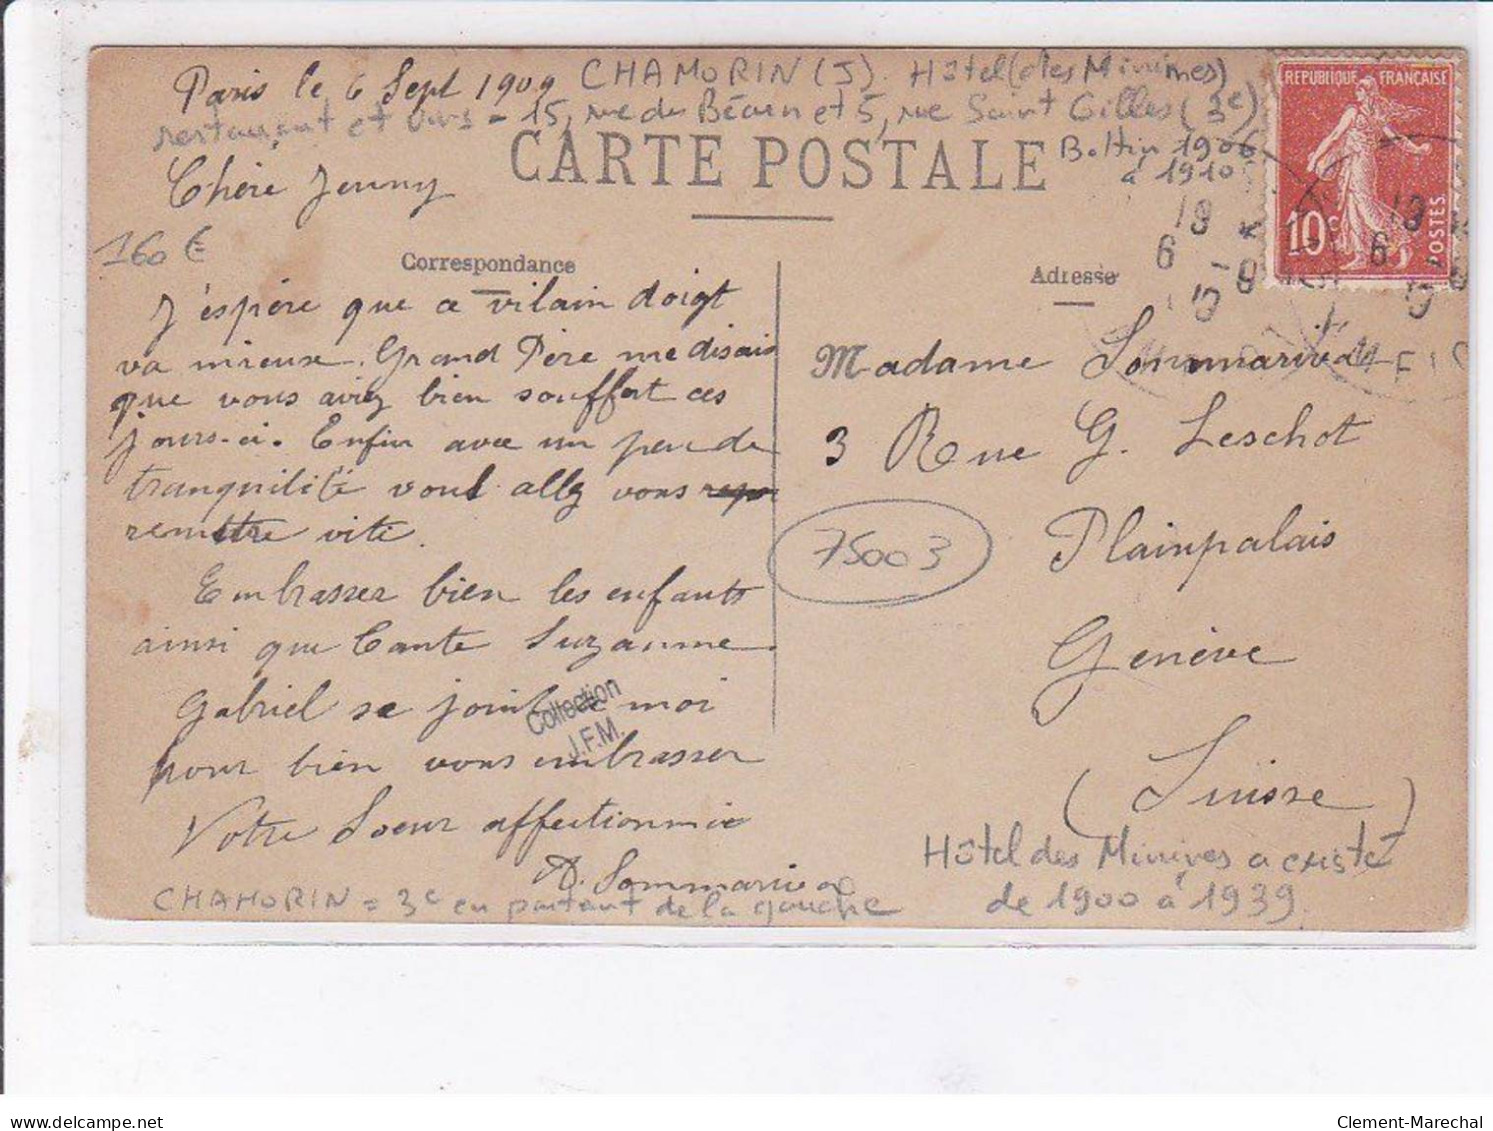 Paris le 6 Sept 1909 CHAMORIN (J). Hôtel (des Minimes)
restaurant et vins = 15, rue du Béarn et 5, rue Saint Gilles (3e)
Bottin 1906
à 1910
CARTE POSTALE
REPUBLIQUE FRANÇAISE
10c
POSTES
Chère Jenny
160 €
Correspondance
J'espère que ce vilain doigt
va mieux. Grand Père me disais
que vous aviez bien souffert ces
jours-ci. Enfin avec un peu de
tranquilité vous allez vous
remettre vite.
Embrassez bien les enfants
ainsi que Tante Suzanne
Gabriel se joint à moi
pour bien vous embrasser
Votre Soeur affectionnée
A. Sommariva
Collection
J.F.M.
CHAMORIN = 3e en partant de la gauche
Adresse
Madame Sommariva
3 Rue G. Leschot
75003
Plainpalais
Genève
(Suisse)
Hôtel des Minimes a existé
de 1900 à 1939.
Clement-Marechal
delcampe.net